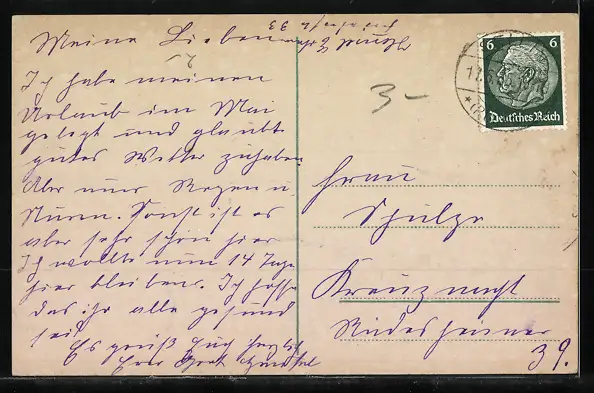 Meine Lieben
Ich habe meinen
Urlaub im Mai
gelegt und glaubte
gutes Wetter zuhaben
Aber nur Regen u.
Sturm. Sonst ist es
aber sehr schön hier
Ich wollte nun 14 Tage
hier bleiben. Ich hoffe
das ihr alle gesund
seit
Es grüß Euch herzlich
Eure
3-
6 6
Deutsches Reich
Frau
Schulze
Kreuznacht
Rüdesheimer
39.